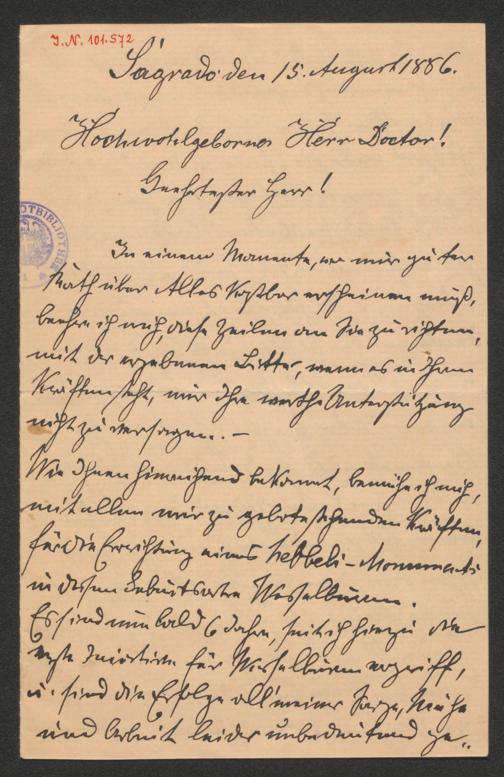 J.N. 101.572
Sagrado den 15. August 1886.
Hochwohlgeborner Herr Doctor!
Geehrtester Herr!
In einem Momente, wo mir guter
Rath über Alles kostbar erscheinen muß,
beehre ich mich, diese Zeilen an Sie zu richten,
mit der ergebenen Bitte, wenn es in Ihren
Kräften steht, mir Ihre werthe Unterstützung
nicht zu versagen. –
Wie Ihnen hinreichend bekannt, bemühe ich mich,
mit allen mir zu gebote stehenden Kräften,
für die Errichtung eines Hebbel-Monuments
in dessen Geburtsorte Wesselburen.
Es sind nun bald 6 Jahre, seit ich hiezu die
erste Initiative für Wesselburen ergriff,
u. sind die Erfolge all' meiner Sorge, Mühe
und Arbeit leider unbedeutend ge-